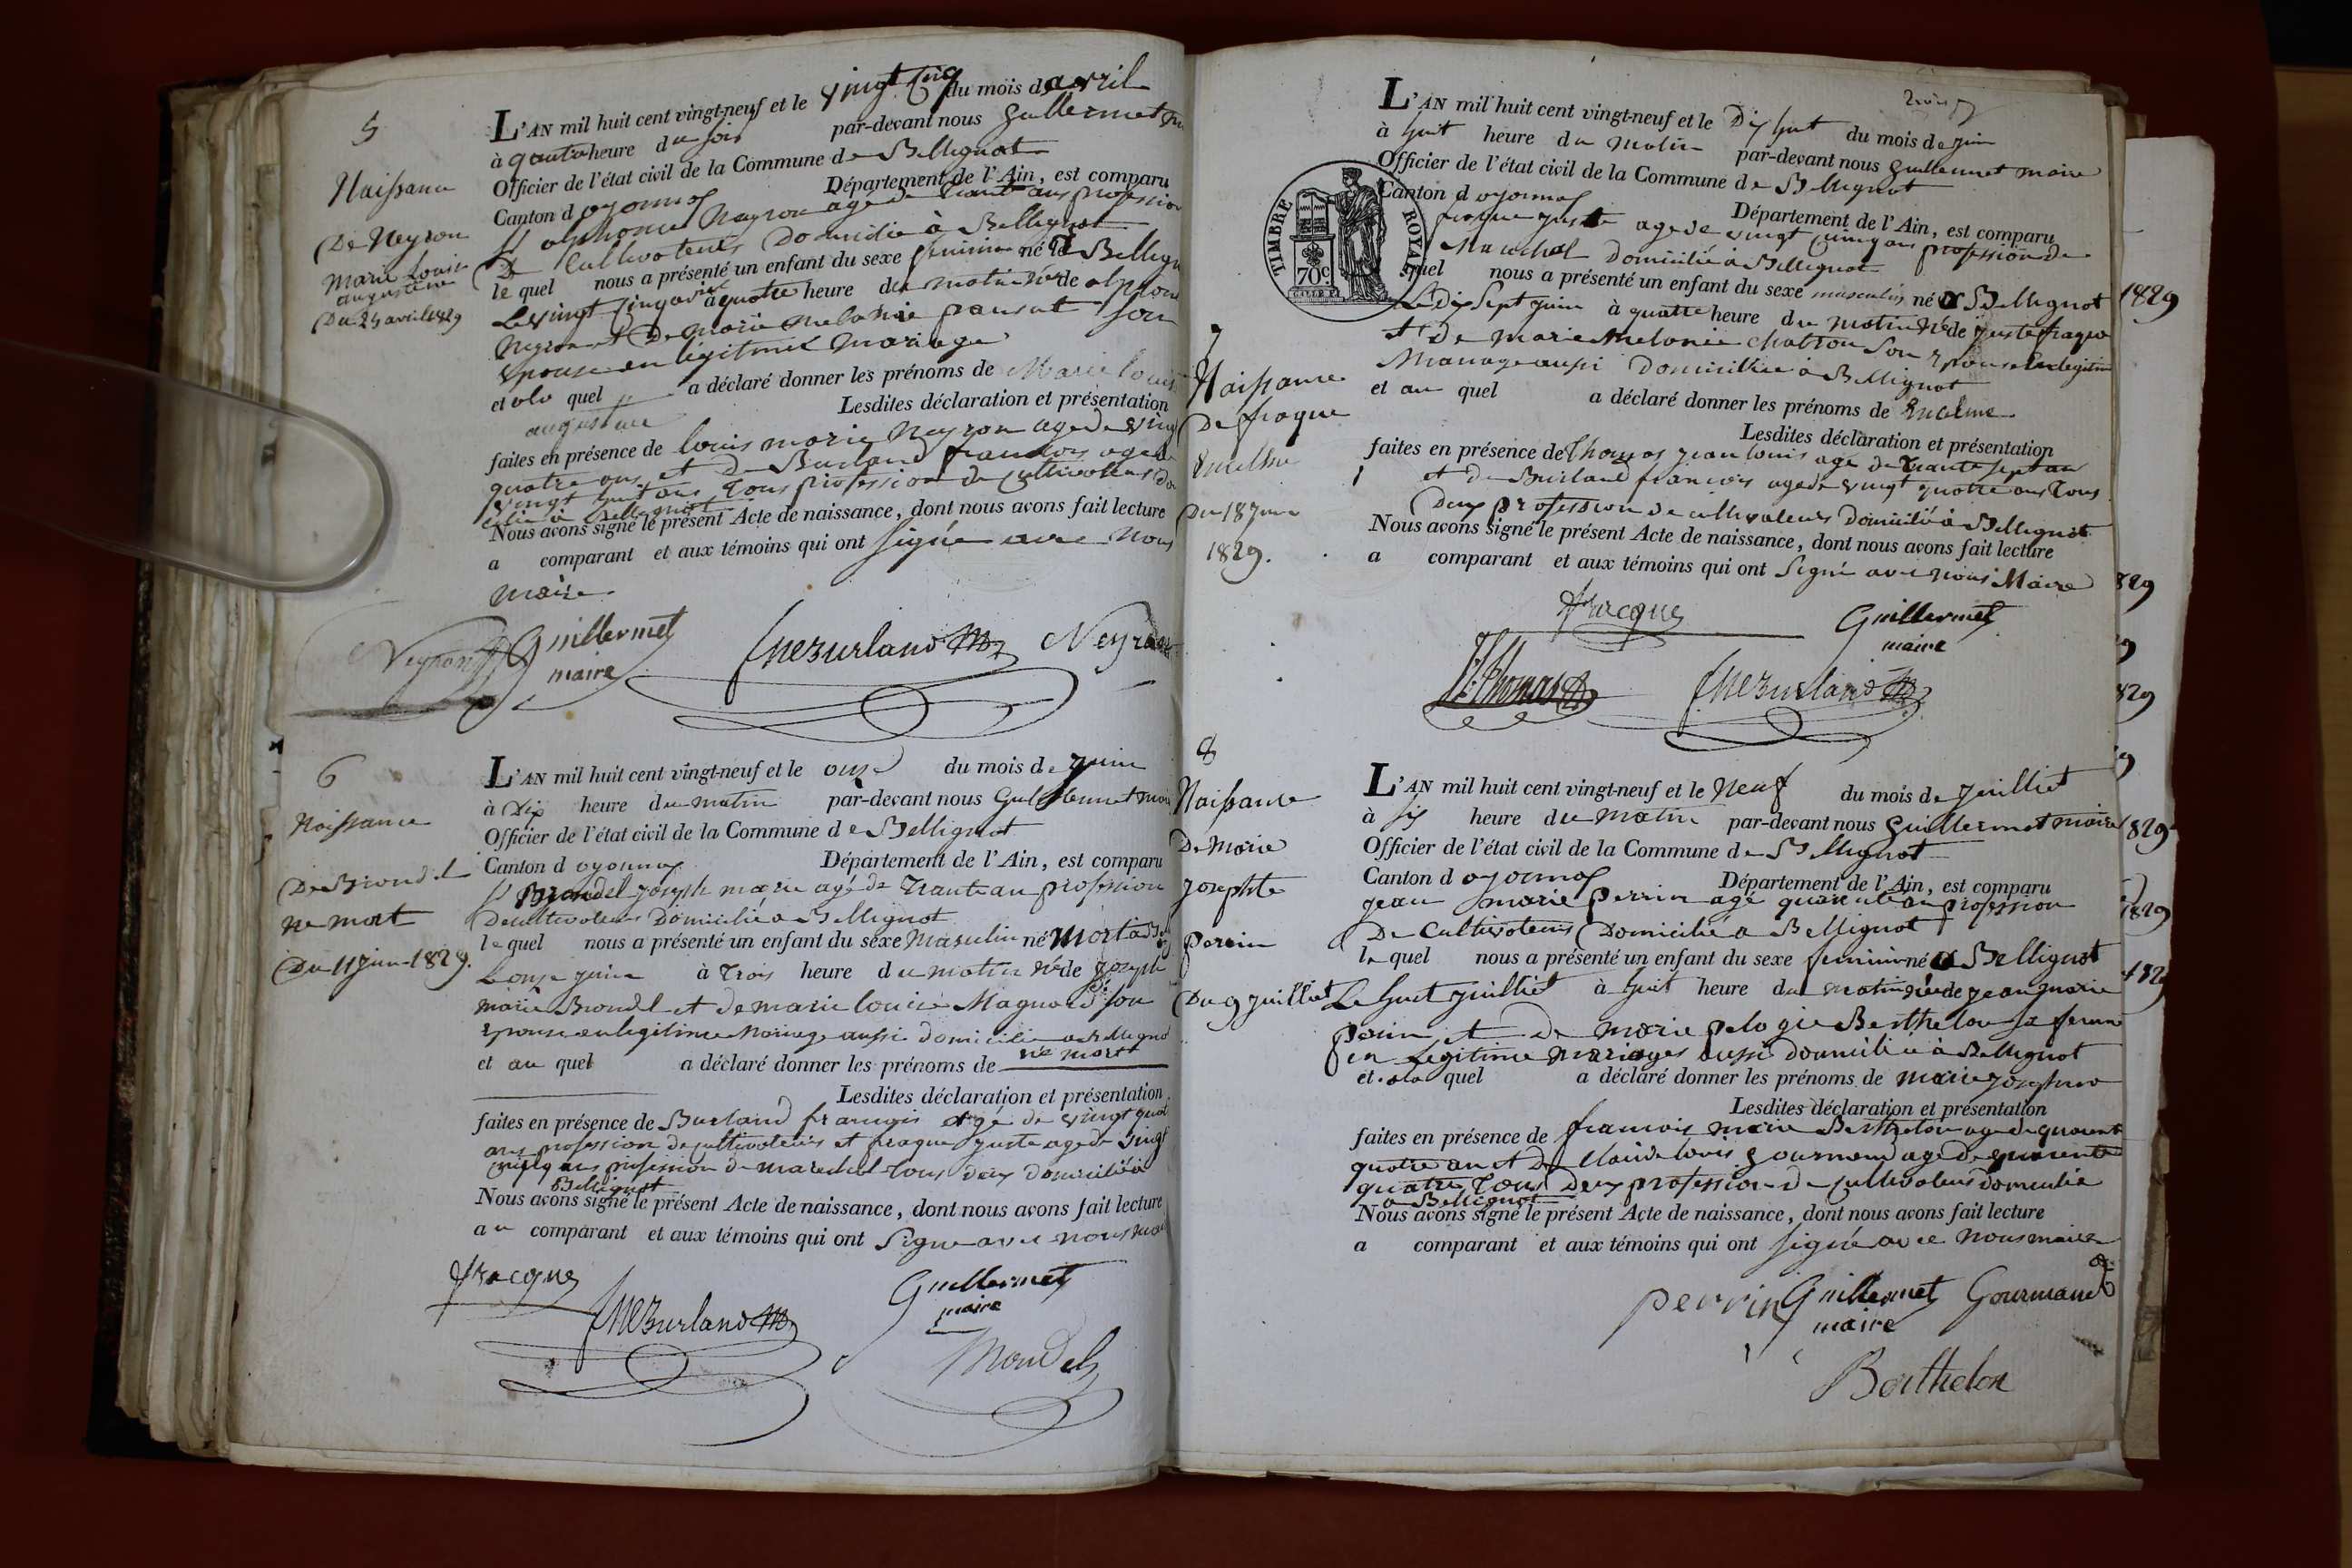 5
Naissance
De Neyron
Marie Louise
augustine
Du 25 avril 1829
L'AN mil huit cent vingt-neuf et le vingt Cinq du mois d avril
à quatre heure du soir par-devant nous Guillermet
Officier de l'état civil de la Commune de Bellignat
Canton d oyonnax Département de l'Ain, est comparu
alphonse Neyron age de trante ans profession
De Cultivateurs Domicilié à Bellignat
le quel nous a présenté un enfant du sexe feminin né à Bellign
Le vingt Cinq avril à quatre heure du matin née de alphons
Neyron et De marie melanie son
epouse en légitime mariage
et a la quel a déclaré donner les prénoms de Marie louis
augustine
Lesdites déclaration et présentation
faites en présence de louis marie Neyron age de vingt
quatre ans et De Burland francois age de
vingt huit ans tous profession de cultivateurs do
cilié à Bellignat
Nous avons signé le présent Acte de naissance, dont nous avons fait lecture
a comparant et aux témoins qui ont signé avec Nous
maire
Neyron Guillermet maire Burland Neyron
6
Naissance
De Brondel
ne mort
Du 11 juin 1829.
L'AN mil huit cent vingt-neuf et le onze du mois de juin
à Dix heure du matin par-devant nous Guillermet mair
Officier de l'état civil de la Commune de Bellignat
Canton d oyonnax Département de l'Ain, est comparu
Brondel joseph marie agé de trante an profession
De cultivateurs Domicilié a Bellignat
le quel nous a présenté un enfant du sexe Masculin né Mort a Be
Le onze juin à trois heure du matin né de joseph
marie Brondel et de marie louise Magnard son
epouse en legitime Mariage aussi domicilié a Bellignat
et au quel a déclaré donner les prénoms de né mort
Lesdites déclaration et présentation
faites en présence de Burland françois agé de vingt quat
ans profession de cultivateurs et fraque juste age de vingt
cinq ans profession de marechal tous deux domicilié à
Bellignat
Nous avons signé le présent Acte de naissance, dont nous avons fait lecture
au comparant et aux témoins qui ont Signe avec nous mai
fracque Burland Guillermet maire
Brondel
L'AN mil huit cent vingt-neuf et le Dix huit du mois de juin
à huit heure du Matin par-devant nous Guillermet maire
Officier de l'état civil de la Commune de Bellignat
Canton d oyonnax Département de l'Ain, est comparu
fraque juste age de vingt cinq ans profession de
Marechal domicilié a Bellignat
quel nous a présenté un enfant du sexe masculin né a Bellignat
Le dix Sept juin à quatre heure du matin né de juste fraque
et De marie melanie chatton son epouse En legitim
Mariage aussi Domicillié a Bellignat
et au quel a déclaré donner les prénoms de Encelme
Lesdites déclaration et présentation
faites en présence de Thomas jean louis age de trante sept an
et de Burland francois age de vingt quatre ans tous
Deux profession de cultivateurs domicilié à Bellignat
Nous avons signé le présent Acte de naissance, dont nous avons fait lecture
a comparant et aux témoins qui ont Signé avec nous Maire
fracque Guillermet maire
Thomas Burland
TIMBRE ROYAL
70 c.
7
Naissance
De fraque
Encelme
Du 18 juin
1829.
8
Naissance
De Marie
josephte
perrin
Du 9 juilliet
L'AN mil huit cent vingt-neuf et le Neuf du mois de juilliet
à six heure du matin par-devant nous Guillermet maire
Officier de l'état civil de la Commune de Bellignat
Canton d oyonnax Département de l'Ain, est comparu
jean marie perrin agé quarente an profession
De Cultivateurs Domicilié a Bellignat
le quel nous a présenté un enfant du sexe feminin né a Bellignat
Le huit juilliet à huit heure du matin née de jean marie
perin et de marie pelogie Berthelon sa femme
en Legitime mariages aussi domicilié à Bellignat
et a la quel a déclaré donner les prénoms de marie
Lesdites déclaration et présentation
faites en présence de francois marie Berthelon age de quarent
quatre an et De Claude louis gourmand age de quarente
quatre tous Deux profession de cultivateurs domicilié
a Bellignat
Nous avons signé le présent Acte de naissance, dont nous avons fait lecture
a comparant et aux témoins qui ont signé avec nous maire
perrin Guillermet maire Gourmand
Berthelon
1829
829
9
829
9
829
1829
182